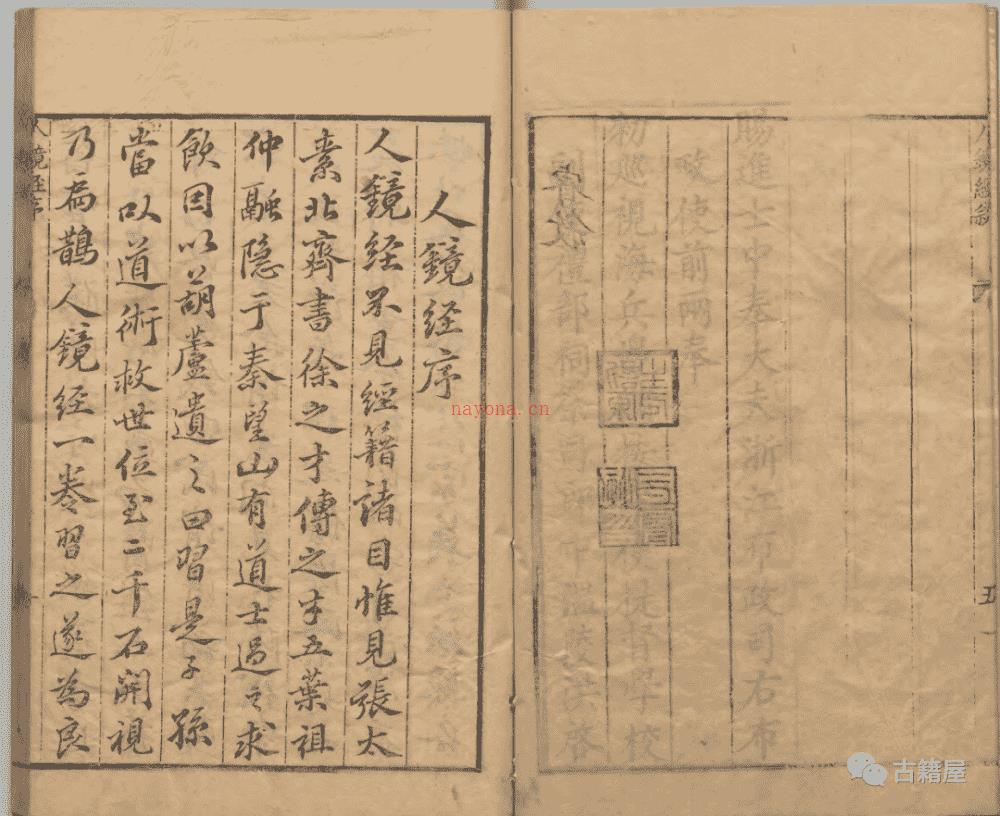 五
賜進士中奉大夫浙江布政司右布
政使前兩奉
勑巡視海兵提督學校
禮部祠祭司郎中溫陵洪啓
人鏡經序
人鏡經不見經籍諸目惟見張太
素北齊書徐之才傳之才五葉祖
仲融隐于秦望山有道士過之求
飲因以葫蘆遺之曰習是子孫
當以道術救世位至二千石開視
乃扁鵲人鏡經一卷習之遂為良
人鏡經序
nayona.cn
古籍屋